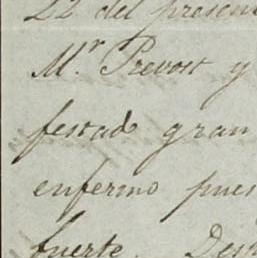 22 del presen
Mr. Prevost y
festado gran
enfermo pues
fuerte. Des